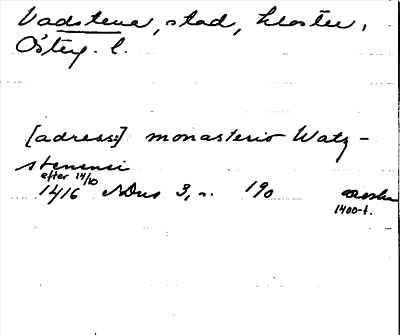 Vadstena, stad, kloster,
Östg. l.
[adress] monasterio Watz-
stenensi
efter 14/10
1416 SDns 3, s. 190
1400-t.